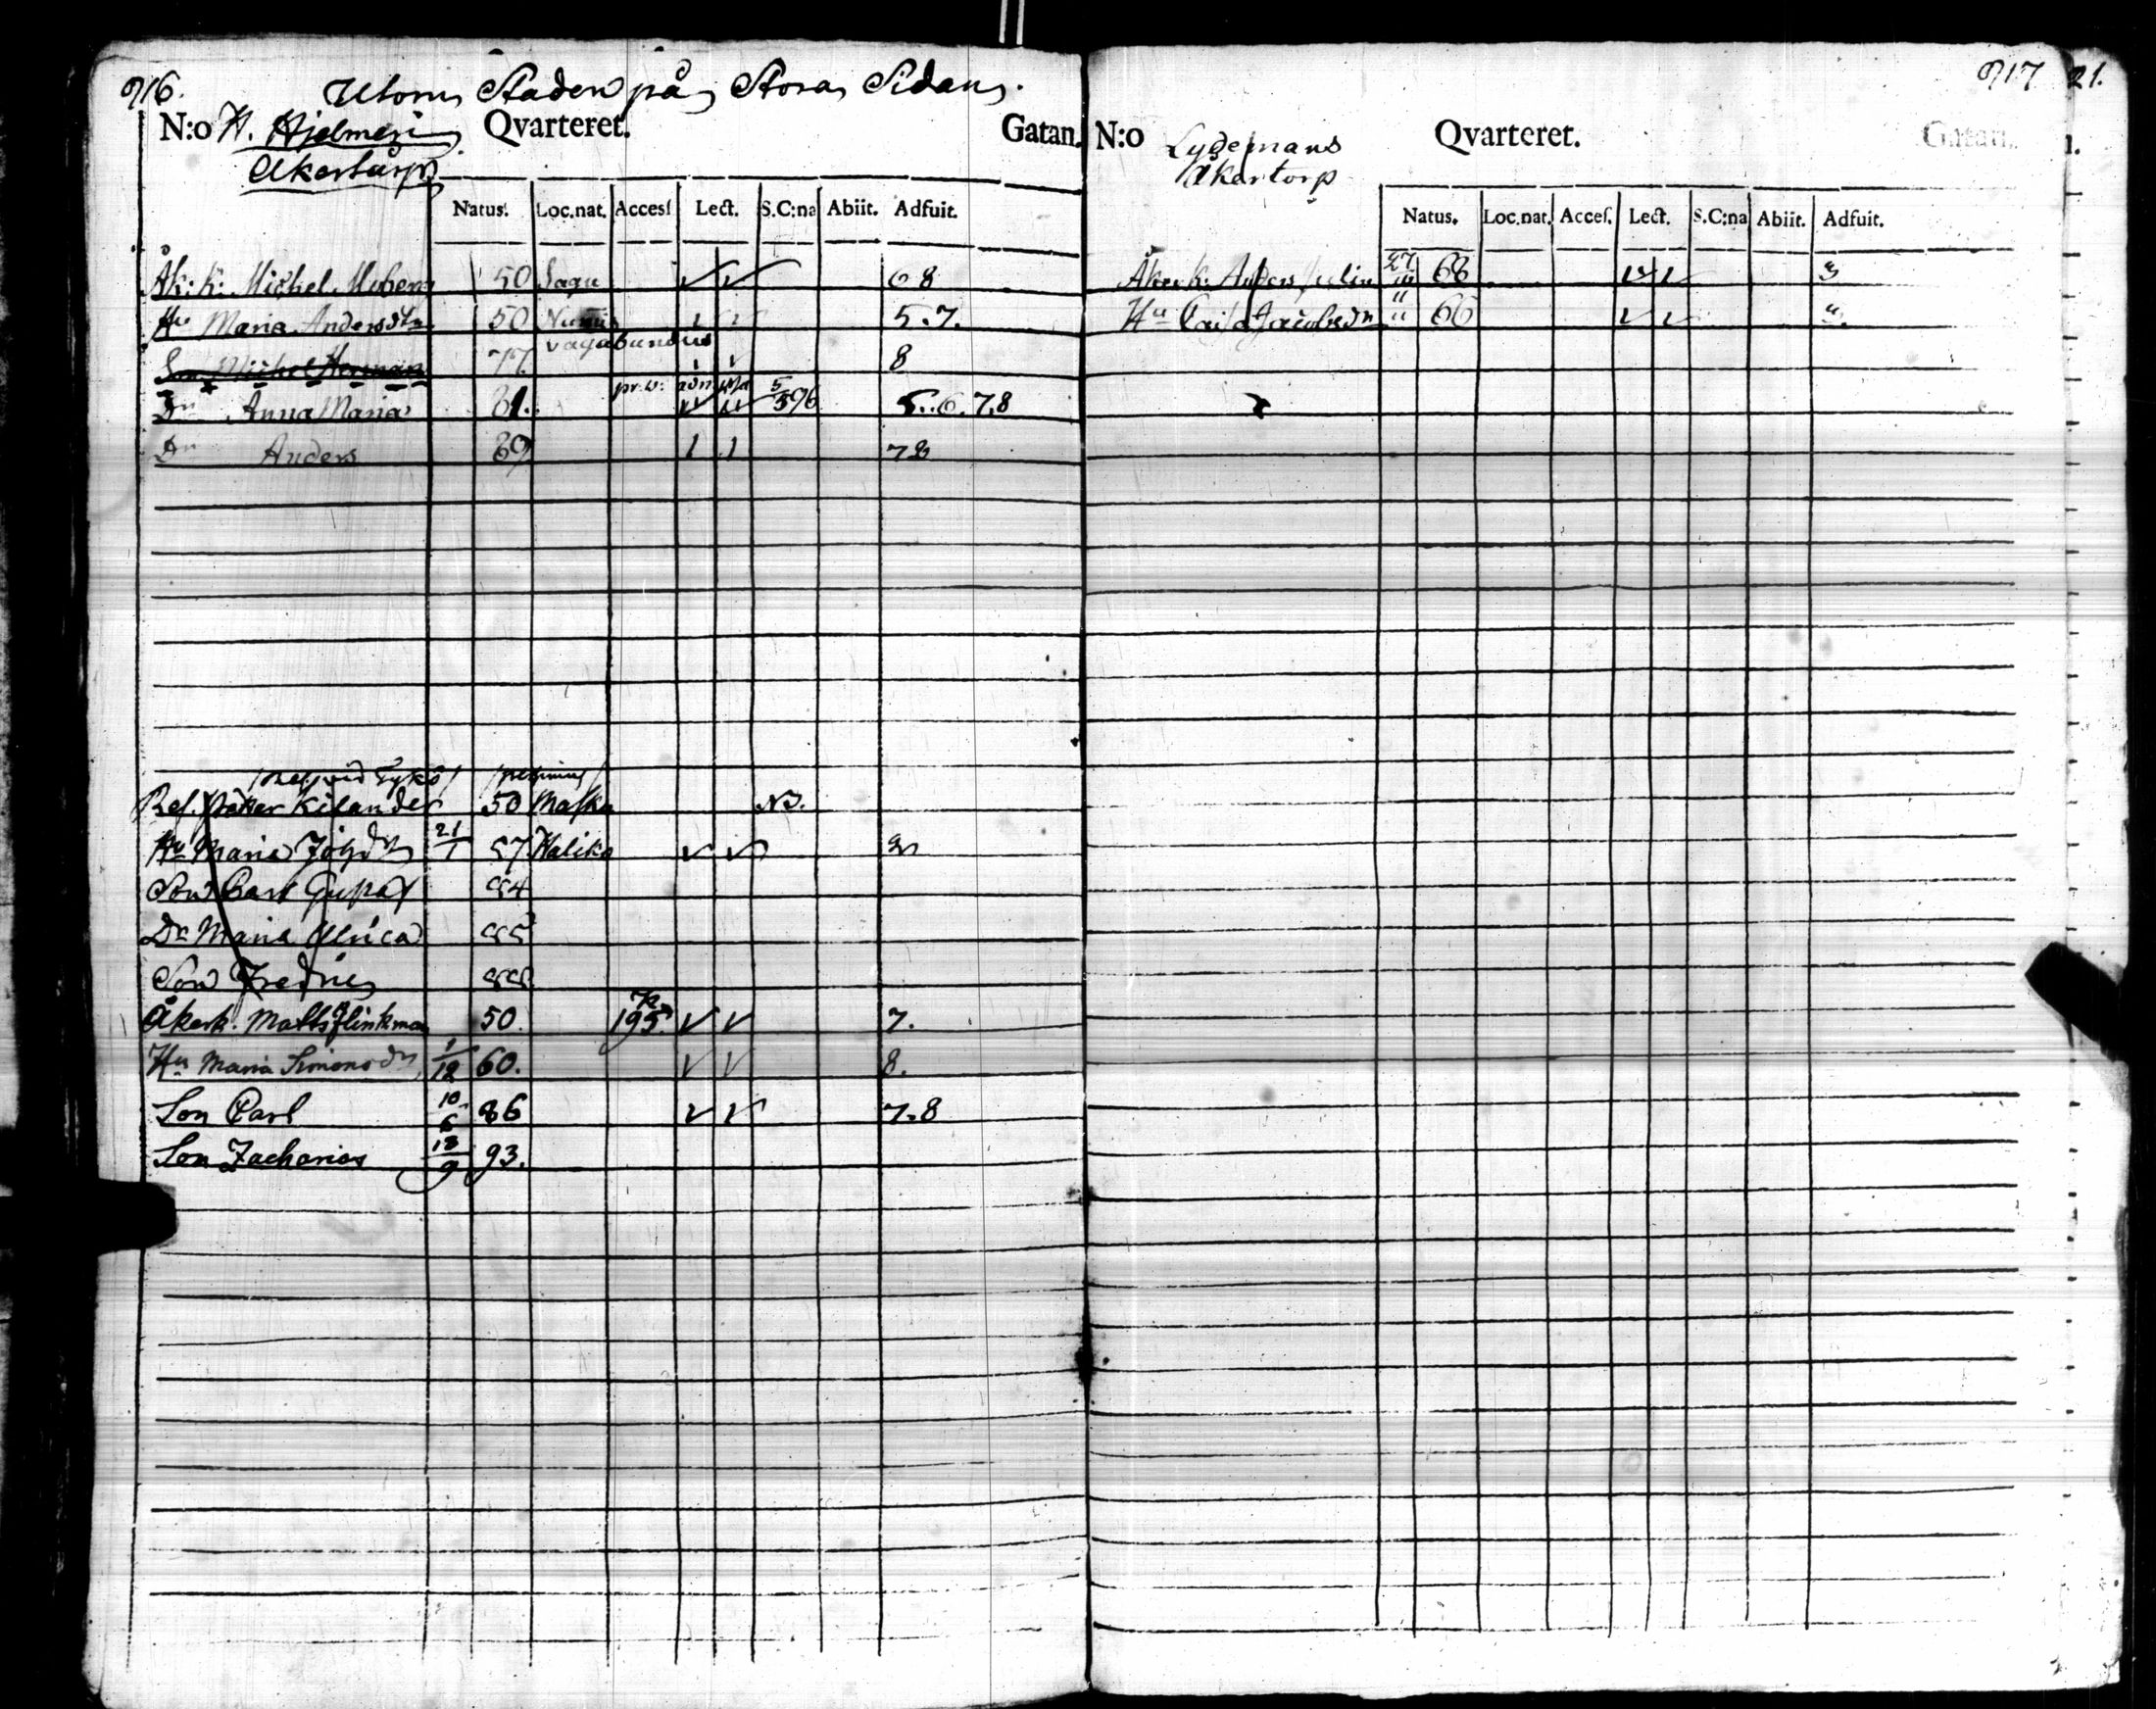 916.
Utom Staden på Stora Sidan.
N:o H. Hjelmeri Qvarteret. Gatan.
Åkertårp
Natus. Loc.nat. Accesſ Lect. S.C:na Abiit. Adfuit.
Åk: K: Michel Moberg 50 Sagu 6 8
Hu Maria Andersdr 50 5.7.
vagabundus
Son Michel Herman 77. 8
Dr Anna Maria 81. pr. v: adm 5/5 96 5..6.7.8
Dr Anders 89 1 1 7 8
Ref. Petter Kilander 50 Masku NB.
Hu Maria Johsdr 21/1 57 Haliko
Son Carl Gustaf 84
Dr Maria Ulrica 85
Son Fredric 88
Åkerk. Matts Flinkman 50. 195. 7.
Hu Maria Simonsdr 1/12 60. 8.
Son Carl 10/6 86 7.8
Son Zacharias 18/9 93.
917 21.
N:o Lydemans Qvarteret. Gatan.
Åkertorp
Natus. Loc.nat. Acceſ. Lect. S.C:na Abiit. Adfuit.
Åker k. Anders 27 68 3
Hu Caisa Jacobsdr " 66 ".